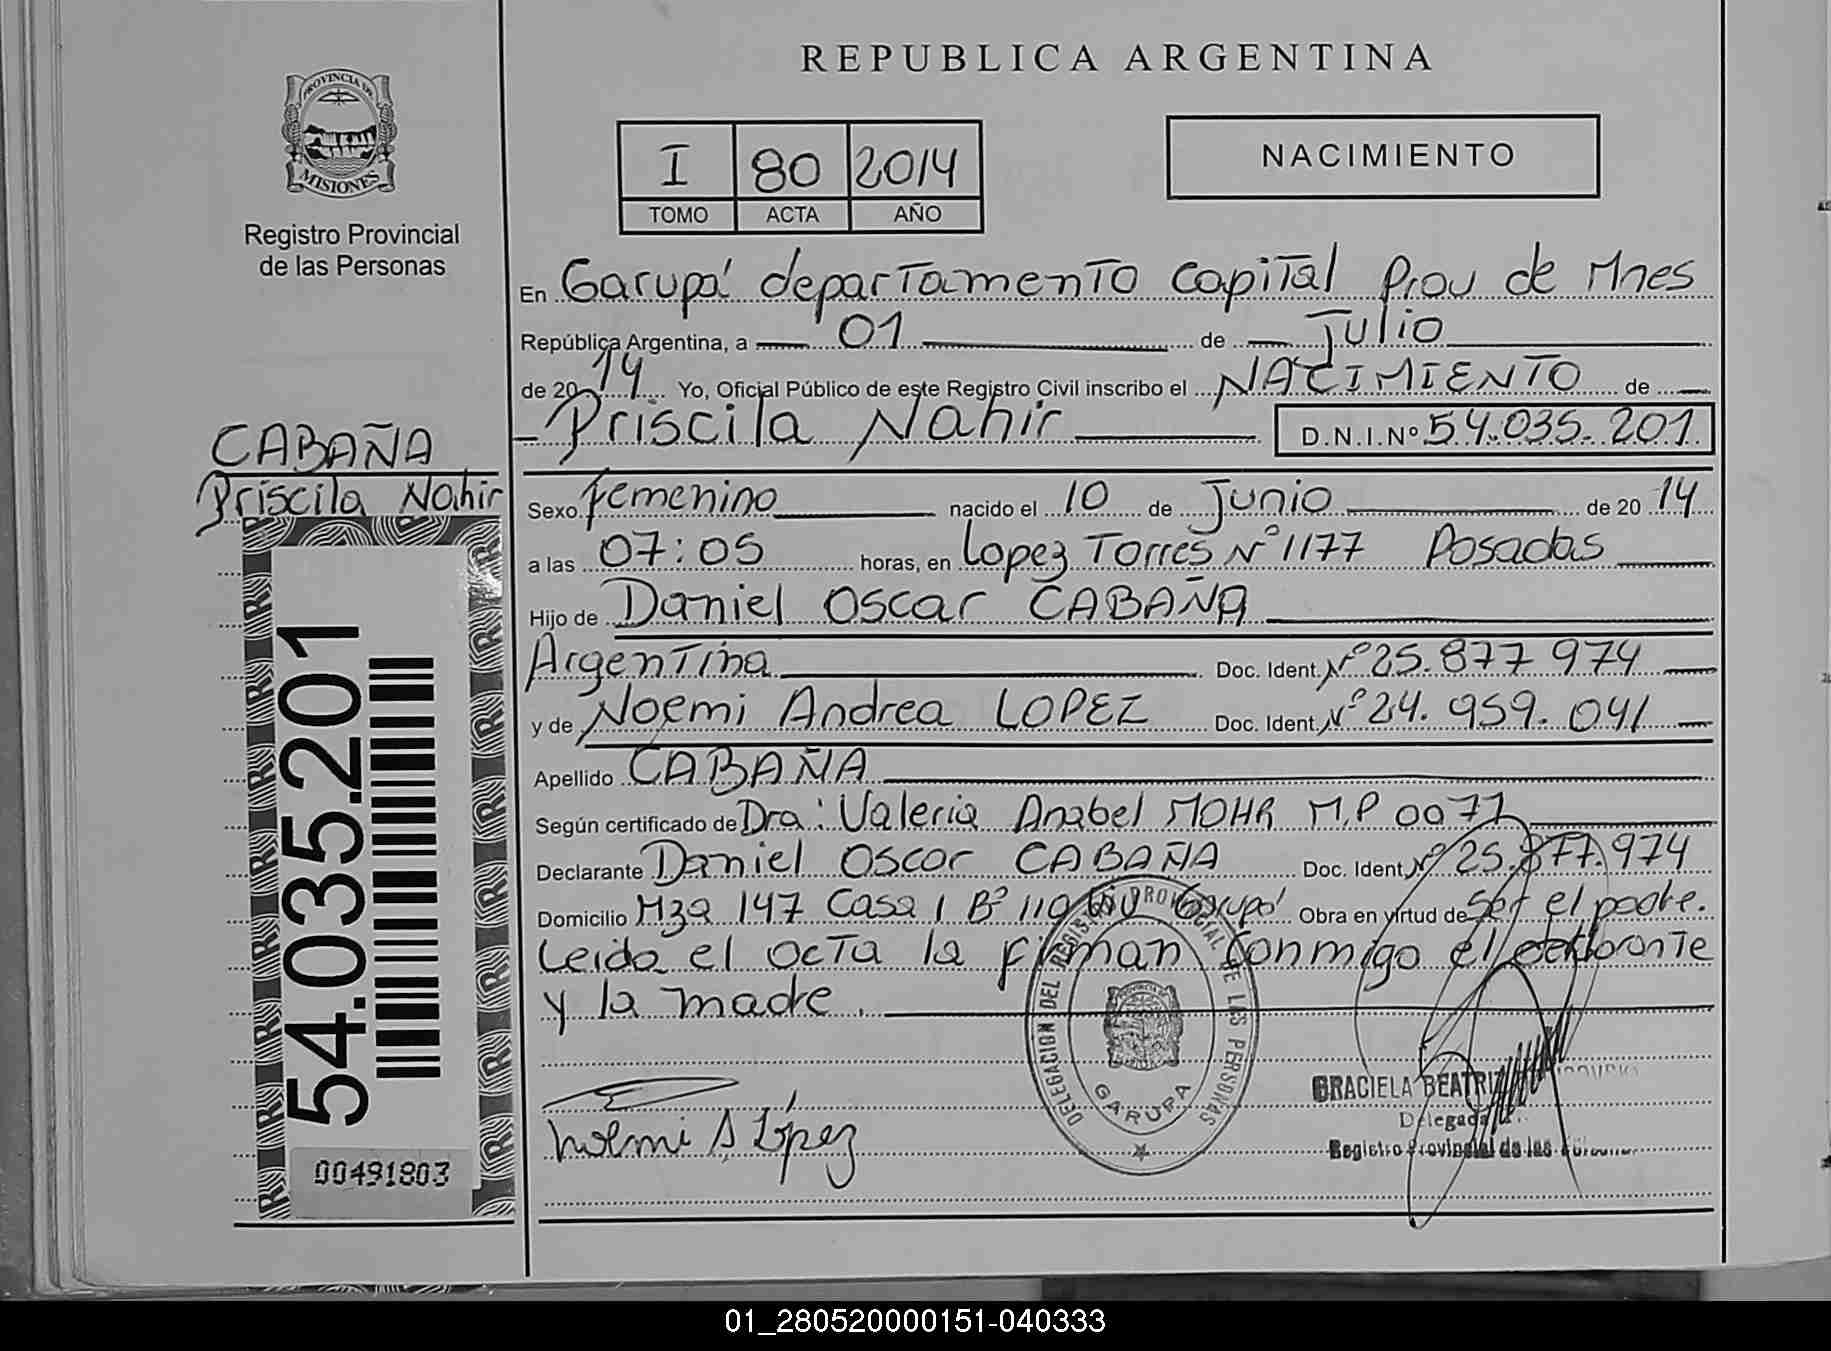 REPUBLICA ARGENTINA
PROVINCIA DE
MISIONES
Registro Provincial
de las Personas
I 80 2014
TOMO ACTA AÑO
NACIMIENTO
En Garupá departamento Capital Prov de Mnes
República Argentina, a 01 de Julio
de 20 14 Yo, Oficial Público de este Registro Civil inscribo el NACIMIENTO de
Priscila Nahir D.N.I.Nº 54.035.201
CABAÑA
Priscila Nahir
Sexo femenino nacido el 10 de Junio de 20 14
a las 07:05 horas, en Lopez Torres Nº 1177 Posadas
Hijo de Daniel Oscar CABAÑA
Argentina Doc. Ident. Nº 25.877 974
y de Noemi Andrea LOPEZ Doc. Ident. Nº 24.959.041
Apellido CABAÑA
Según certificado de Dra: Valeria Anabel MOHR M.P 0071
Declarante Daniel Oscar CABAÑA Doc. Ident. Nº 25.877.974
Domicilio Mza 147 Casa 1 Bº 110 Viv Garupá Obra en virtud de Ser el padre.
Leida el acta la firman conmigo el declarante
y la madre.
54.035.201
00491803
DELEGACION DEL REGISTRO PROVINCIAL DE LAS PERSONAS
GARUPA
Noemi A. López
GRACIELA BEATRIZ
Delegada
Registro Provincial de las
01_280520000151-040333